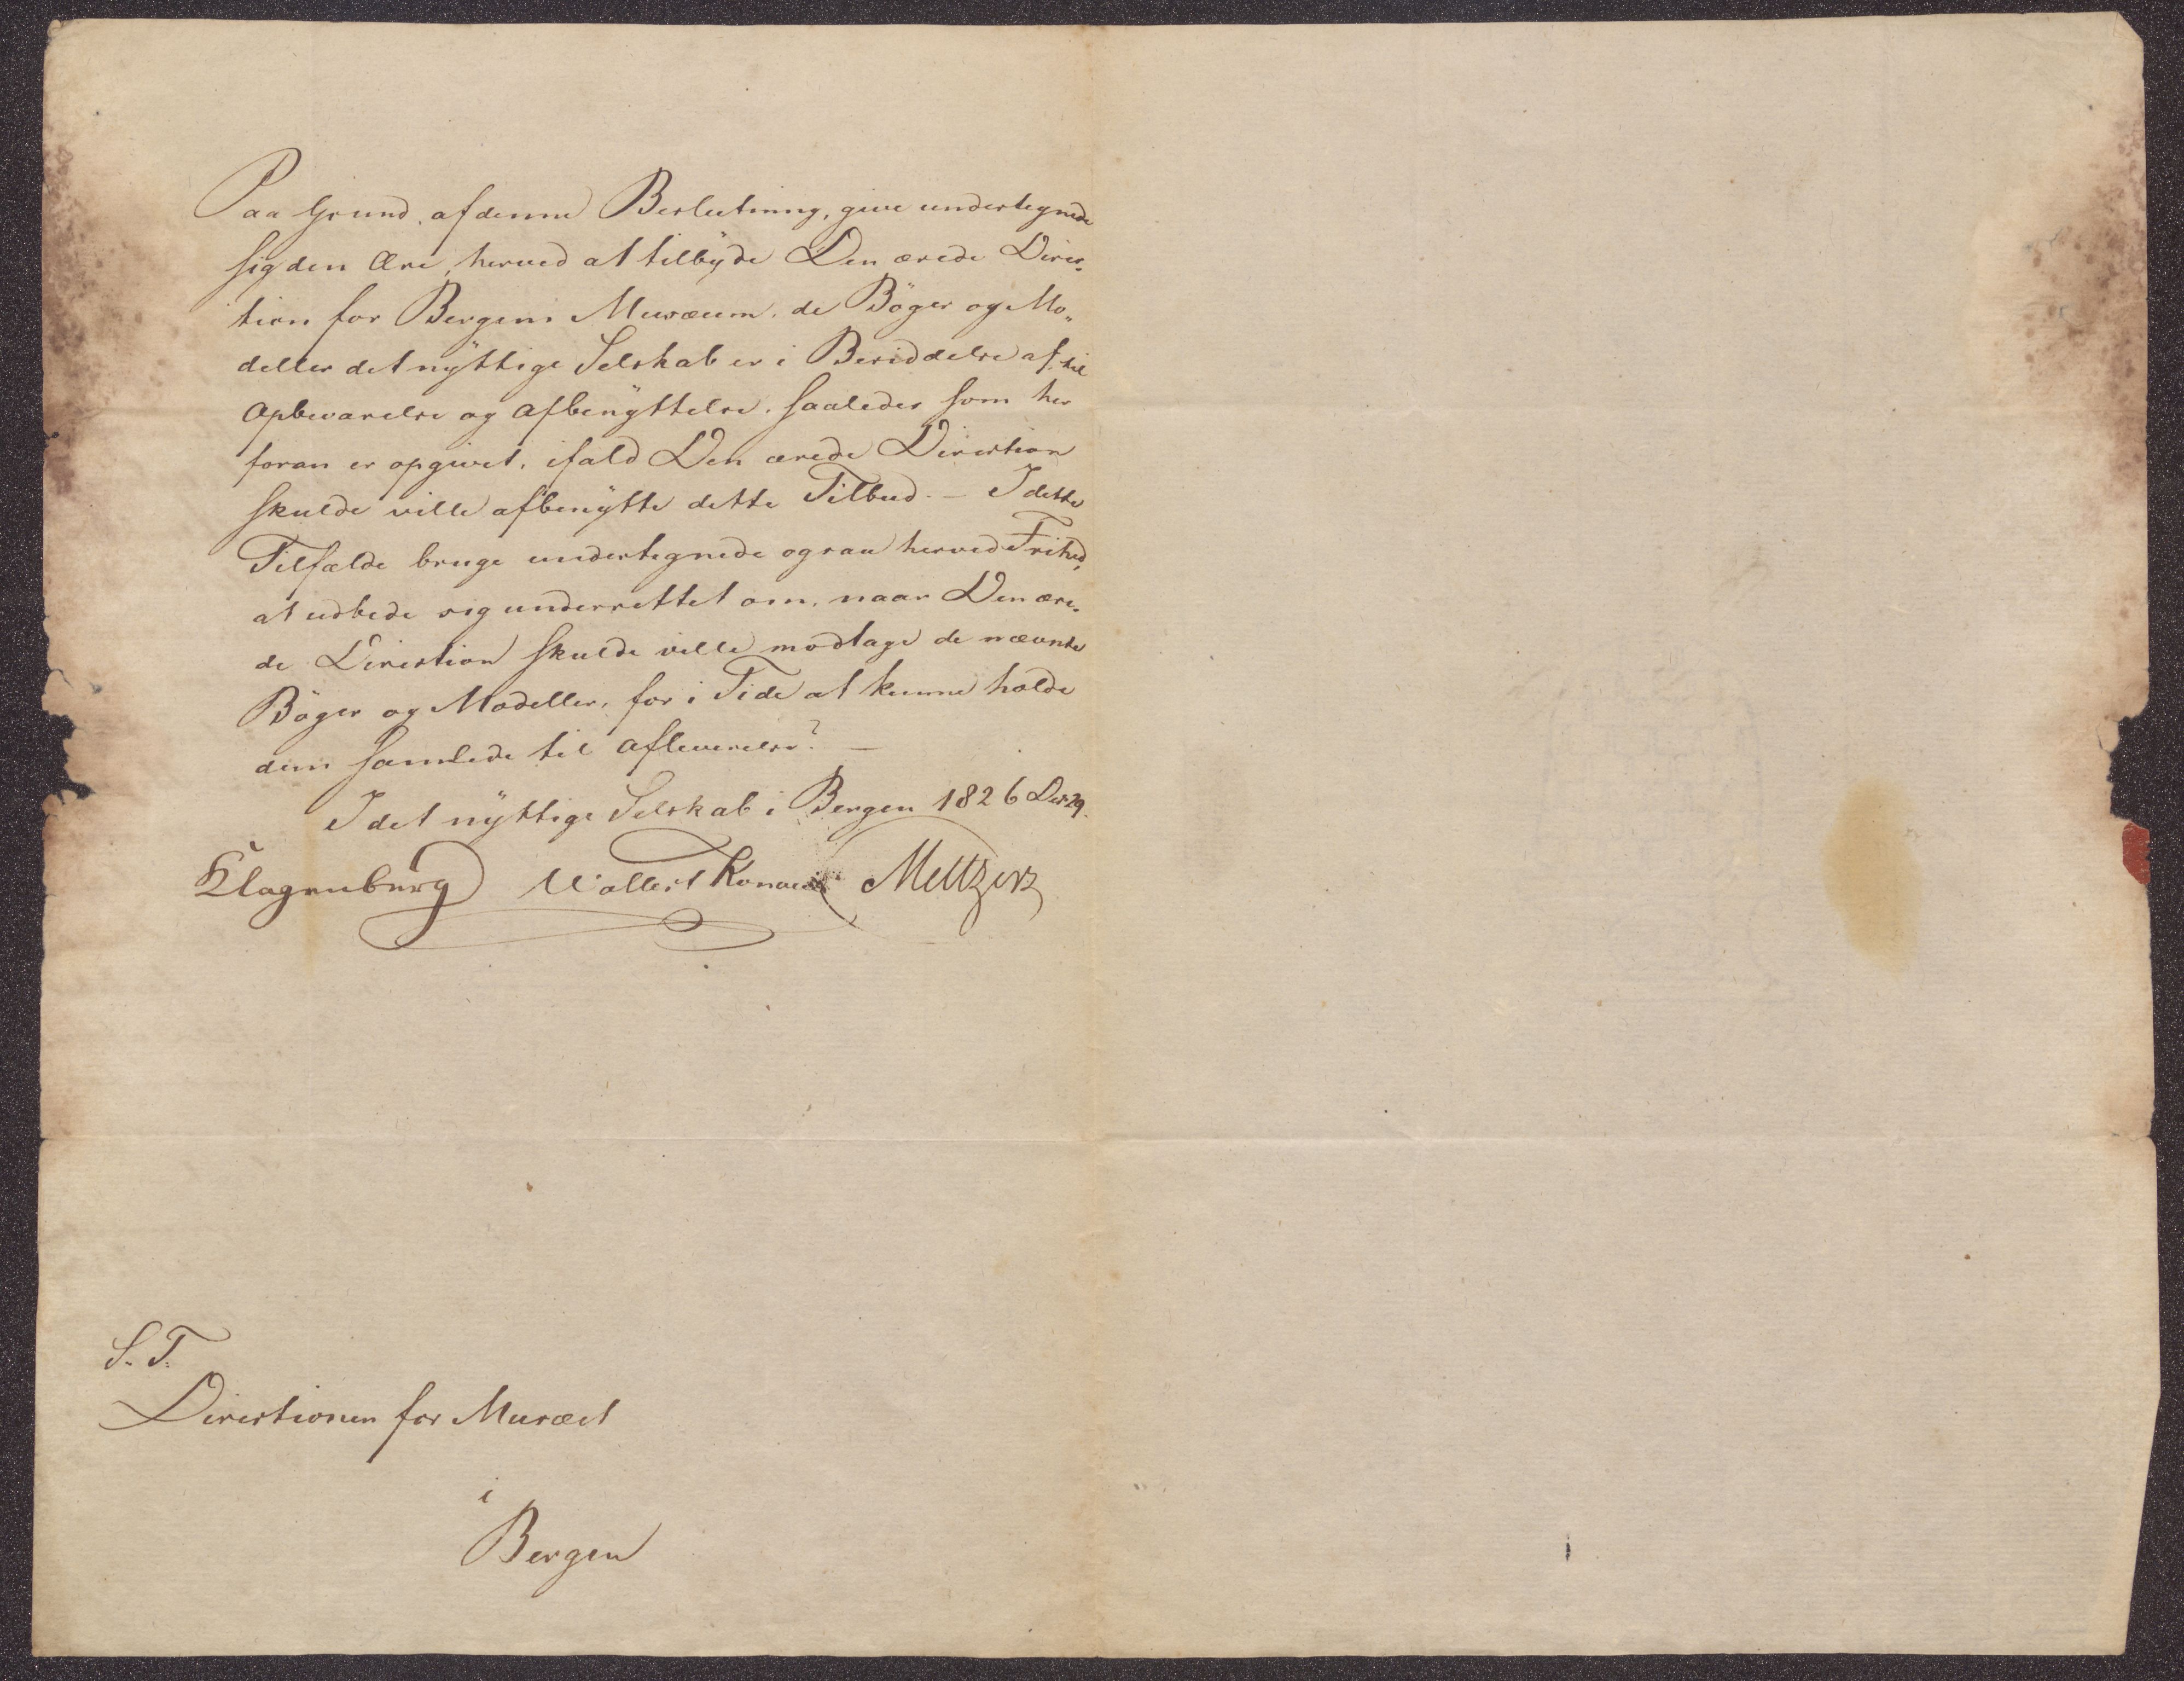 Paa Grund, af denne Beslutning, give undertegnede
sig den Ære, herved at tilbÿde Den ærede Direc„
tion for Bergens Musæum, de Böger og Mo„
deller det nÿttige Selskab er i Besiddelse af, til
Opbevarelse og Afbenÿttelse, saaledes som her
foran er opgivet, ifald Den ærede Direction
skulde ville afbenÿtte dette Tilbud. – I dette
Tilfælde bruge undertegnede ogsaa herved Frihed,
at udbede sig underrettet om, naar Den ære„
de Direction skulde ville modtage de nævnte
Böger og Modeller, for i Tide at kunne holde
dem samlede til Afleverelse? —
I det nÿttige Selskab i Bergen 1826 Dec. 29.
Klagenberg Wollert Konow Meltzer
S. T.
Directionen for Musæet
i
Bergen